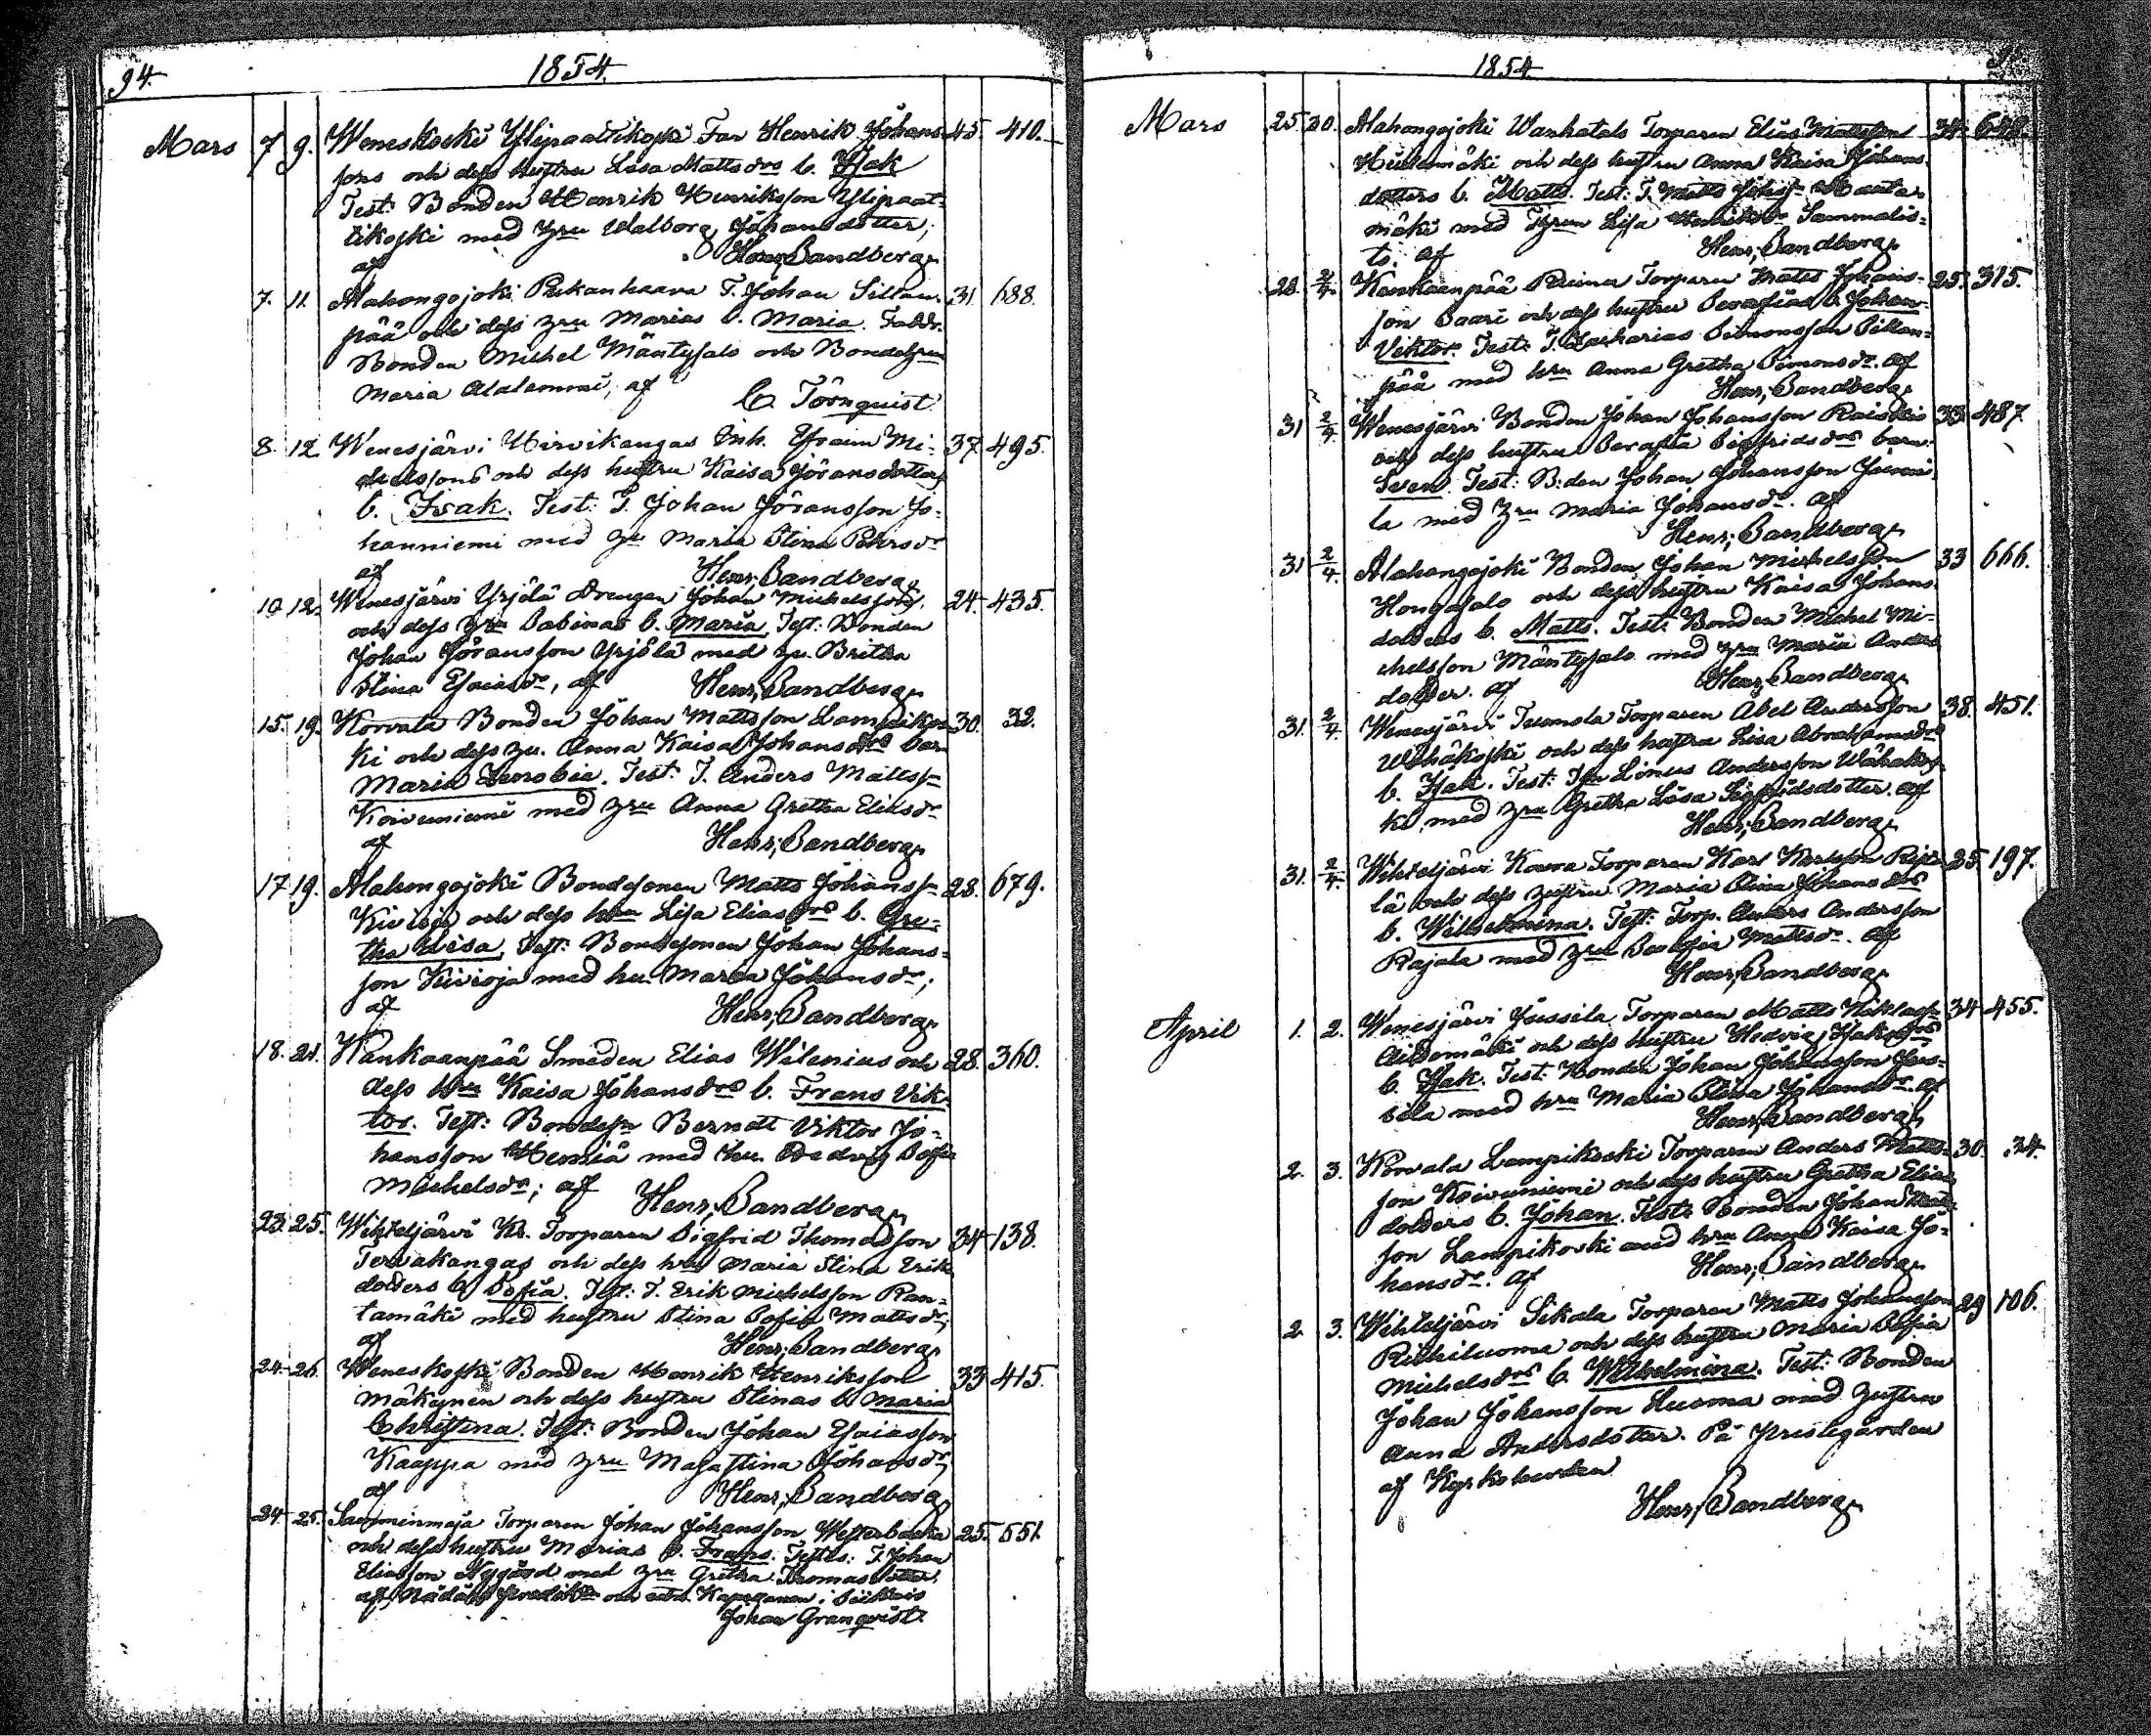 94. 1854.
Mars 7 9. Weneskoski Ylipaattikoski Far Henrik Johans- 45. 410.
sons och dess hustru Lisa Mattsdrs b. Isak
Test: Bonden Henrik Henriksson Ylipaat-
tikoski med hru Walborg Johansdotter,
af Henr. Sandberg.
7. 11. Alahongojoki Pukanhaara T. Johan Sillan- 31. 688.
pää och dess hru Marias b. Maria. Faddr.
Bonden Michel Mäntysalo och Bondehrun
Maria Alaluomi, af
C. Törnquist.
8. 12 Wenesjärvi Hirvikangas Inh. Efraim Mi- 37. 495.
chelssons och dess hustru Kaisa Göransdotters
b. Isak. Test: T. Johan Göransson Jo-
hanniemi med hru Maria Stina Pehrsdr
af Henr. Sandberg
10. 12. Wenesjärvi Yrjölä Drengen Johan Michelssons 24. 435.
och dess hru Sabinas b. Maria. Test: Bonden
Johan Göransson Yrjölä med hu. Britha
Stina Esaiasdr, af Henr. Sandberg.
15. 19. Korvala Bonden Johan Mattsson Lampikos- 30. 32.
ki och dess hu. Anna Kaisa Johansdrs barn
Maria Zenobia. Test: T. Anders Mattss:n
Koivuniemi med hru Anna Gretha Eliasdr
af Henr. Sandberg.
17 19. Alahongojoki Bondesonen Matts Johanss:n 28. 679.
Kivioja och dess hru Lisa Eliasdrs b. Gre-
tha Lisa. Test: Bondesonen Johan Johans-
son Kivioja med hu. Maria Johansdr,
af Henr. Sandberg
18. 21. Kankaanpää Smeden Elias Wilenius och 28. 360.
dess hru Kaisa Johansdrs b. Frans Vik-
tor. Test: Bondes:n Berndt Viktor Jo-
hansson Hemiä med hu. Hedvig Sofia
Michelsdr; af Henr. Sandberg.
23. 25. Wihteljärvi Kr. Torparen Sigfrid Thomasson 34 138.
Tervakangas och dess hru Maria Stina Eriks
dotters b. Sofia. Test: T. Erik Michelsson Ran-
tamäki med hustru Stina Sofia Mattsdr,
af Henr. Sandberg.
24. 26. Weneskoski Bonden Henrik Henriksson 33 415.
Mäkynen och dess hustru Stinas b. Maria
Christina. Test: Bonden Johan Esaiasson
Kaappa med hru Maja Stina Johansdr,
af Henr. Sandberg
24 25. Samminmaja Torparen Johan Johansson Westerbacka 25. 551.
och dess hustru Marias b. Frans. Testes: T. Johan
Eliasson Nygård med hru Gretha Thomasdotter,
af och Kapellanen i Siikais
Johan Granqvist.
1854.
Mars 25. 30. Alahongojoki Wanhatalo Torparen Elias Mattssons 34.
och dess hustru Anna Kaisa Johans-
dotters b. Matts. Test: T. Matts Johss:n
mäki med hrun Lisa Henriksdr Sammalis-
to. af Henr. Sandberg.
28. 2/4. Kankaanpää Ruina Torparen Matts Johans- 25. 315.
son Saari och dess hustru Serafias b. Johan
Viktor. Test: T. Zacharias Simonsson Sillan-
pää med hru Anna Gretha Simonsdr. af
Henr. Sandberg.
31 2/4 Wenesjärvi Bonden Johan Johansson 33. 487.
och dess hustru Serafia Sigfridsdrs barn
Sven. Test: B:den Johan Johansson
la med hru Maria Johansdr. af
Henr. Sandberg
31 2/4. Alahongojoki Bonden Johan Michelsson 33 666.
Hongasalo och dess hustru Kaisa Johans-
dotters b. Matts. Test: Bonden Michel Mi-
chelsson Mäntysalo med hru Maria Anders
dotter. af Henr. Sandberg.
31. 2/4. Wenesjärvi Tuomola Torparen Abel Andersson 38. 451.
Wähäkoski och dess hustru Lisa Abrahamsdrs
b. Isak. Test: Linus Andersson Wähäkos-
ki med hru Gretha Lisa Sigfridsdotter. af
Henr. Sandberg.
31. 2/4. Wihteljärvi Kovra Torparen Karl Karlsson 25. 197.
lä och dess hustru Maria Stina Johansdrs
b. Wilhelmina. Test: Torp. Anders Andersson
Rajala med hru Mattsdr. af
Henr. Sandberg.
April 1. 2. Wenesjärvi Jussila Torparen Matts 34 455.
och dess hustru Hedvig Isaksdrs
b. Isak. Test: Bonden Johan Johansson Jus-
sila med hru Maria Stina Johansdr. af
Henr. Sandberg
2. 3. Korvala Lampikoski Torparen Anders Matts- 30. 34.
son Koivuniemi och dess hustru Gretha Elias
dotters b. Johan. Test: Bonden Johan Matts-
son Lampikoski med hru Anna Kaisa Jo-
hansdr. af Henr. Sandberg.
2 3. Wihteljärvi Sikala Torparen Matts Johansson 29 106.
Riihiluoma och dess hustru Maria Sofia
Michelsdrs b. Wilhelmina. Test: Bonden
Johan Johansson Luoma med hustru
Anna Andersdotter. På Prestegården
af Kyrkoherden
Henr. Sandberg.